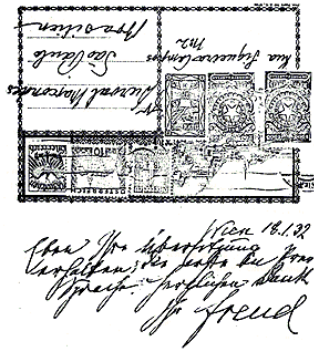 Dr Durval Marcondes
São Paulo
Brasilien
rua
Campos
ÖSTERREICH
10
Wien 18.1.32
Eben Ihre Übersetzung
erhalten, die erste in Ihrer
Sprache. Herzlichen Dank
Ihr Freud